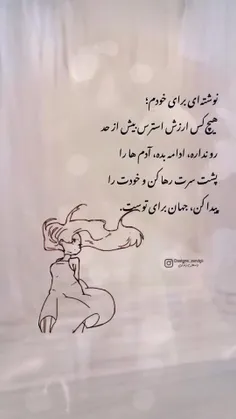 نوشته‌ای برای خودم؛
هیچ کس ارزش استرس بیش از حد
رو نداره، ادامه بده، آدم ها را
پشت سرت رها کن و خودت را
پیدا کن، جهان برای توست.